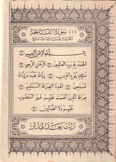 (١) سُورَةُ الفَاتِحَةِ
بِسْمِ ٱللَّهِ ٱلرَّحْمَٰنِ ٱلرَّحِيمِ
ٱلْحَمْدُ لِلَّهِ رَبِّ ٱلْعَٰلَمِينَ ۝ ٱلرَّحْمَٰنِ ٱلرَّحِيمِ ۝
مَٰلِكِ يَوْمِ ٱلدِّينِ ۝ إِيَّاكَ نَعْبُدُ وَإِيَّاكَ
نَسْتَعِينُ ۝ ٱهْدِنَا ٱلصِّرَٰطَ ٱلْمُسْتَقِيمَ ۝
صِرَٰطَ ٱلَّذِينَ أَنْعَمْتَ عَلَيْهِمْ غَيْرِ ٱلْمَغْضُوبِ
عَلَيْهِمْ وَلَا ٱلضَّآلِّينَ ۝